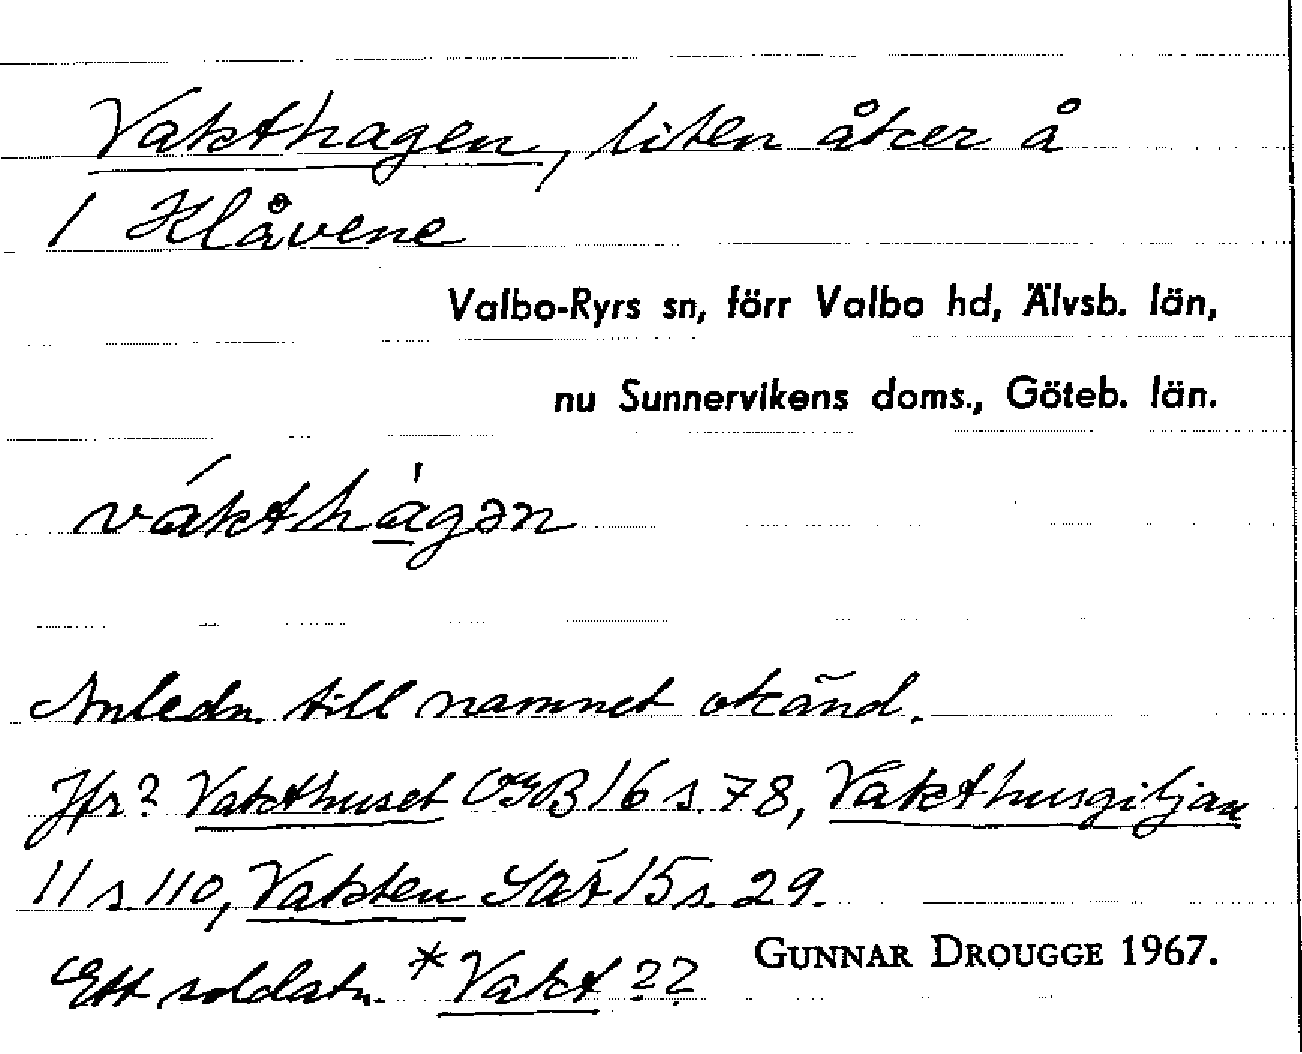 Vakthagen, liten åker å
1 Klåvene
Valbo-Ryrs sn, förr Valbo hd, Älvsb. län,
nu Sunnervikens doms., Göteb. län.
váktha̱̍gən
Anledn. till namnet okänd.
Jfr? Vakthuset OGB 16 s. 78, Vakthusgiljan
11 s. 110, Vakten SOÄ 15 s. 29.
Ett soldatn. *Vakt??
GUNNAR DROUGGE 1967.